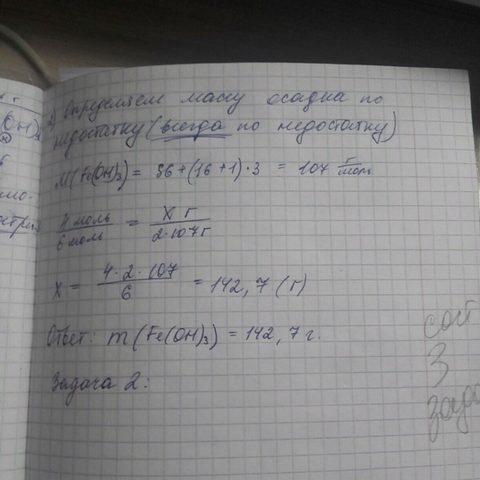 Определяем массу осадка по
недостатку (всегда по недостатку)
M(Fe(OH)3) = 56 + (16 + 1) · 3 = 107 г/моль
4 моль / 6 моль = X г / 2·107 г
X = 4 · 2 · 107 / 6 = 142,7 (г)
Ответ: m (Fe(OH)3) = 142,7 г.
Задача 2:
3